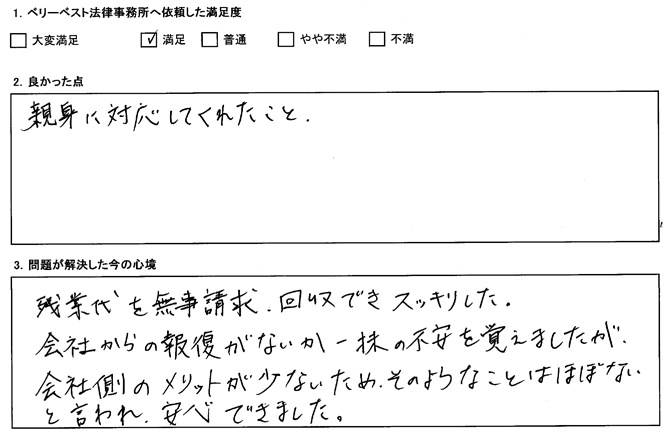 1. ベリーベスト法律事務所へ依頼した満足度
□ 大変満足 ☑ 満足 □ 普通 □ やや不満 □ 不満
2. 良かった点
親身に対応してくれたこと.
3. 問題が解決した今の心境
残業代を無事請求、回収できスッキリした。
会社からの報復がないか一抹の不安を覚えましたが、
会社側のメリットが少ないため、そのようなことはほぼない
と言われ、安心できました。